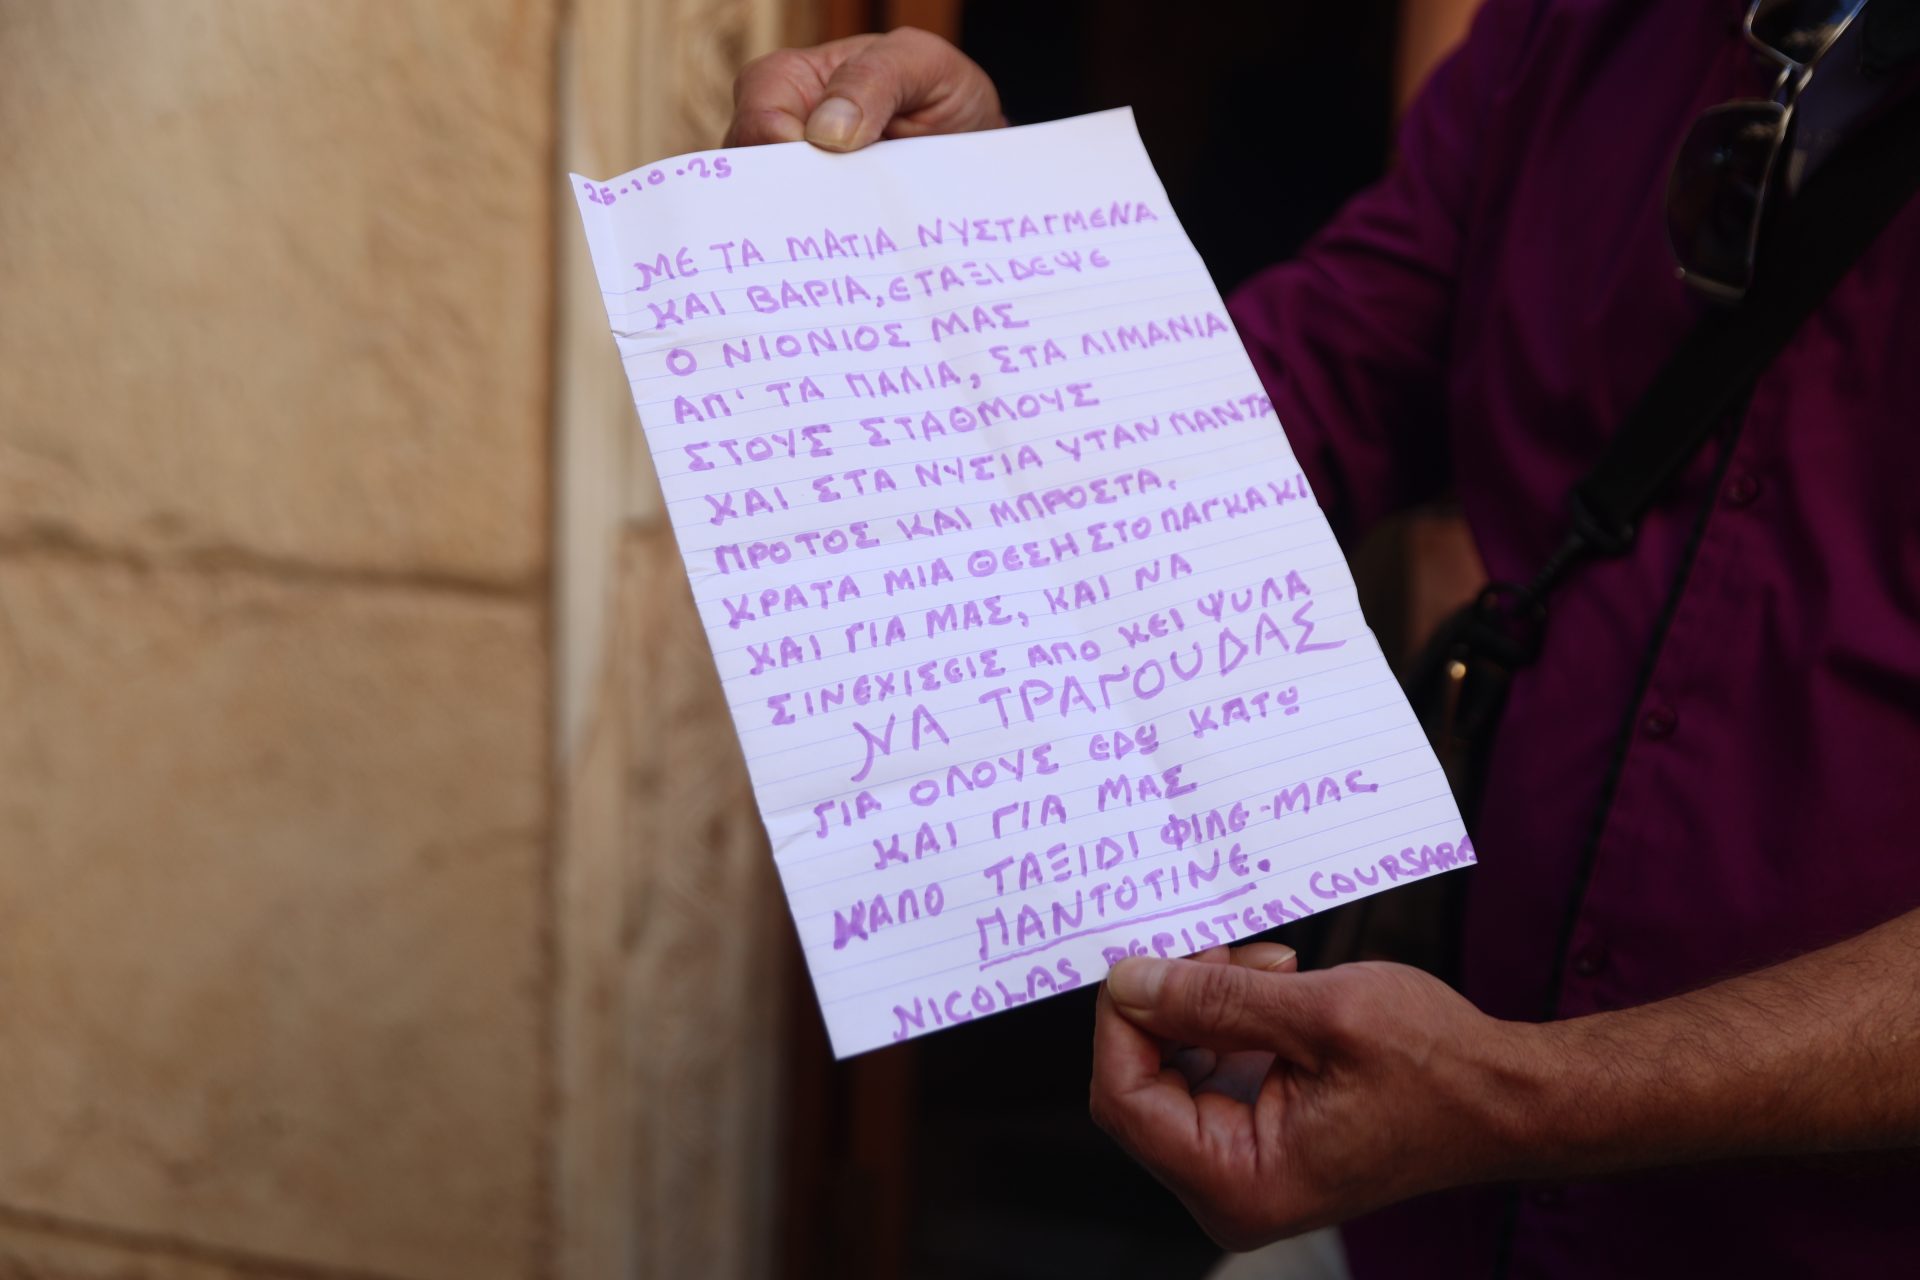 25.10.25
ΜΕ ΤΑ ΜΑΤΙΑ ΝΥΣΤΑΓΜΕΝΑ
ΚΑΙ ΒΑΡΙΑ, ΕΤΑΞΙΔΕΨΕ
Ο ΝΙΟΝΙΟΣ ΜΑΣ
ΑΠ' ΤΑ ΠΑΛΙΑ, ΣΤΑ ΛΙΜΑΝΙΑ
ΣΤΟΥΣ ΣΤΑΘΜΟΥΣ
ΚΑΙ ΣΤΑ ΝΥΣΙΑ ΥΤΑΝ ΠΑΝΤΑ
ΠΡΟΤΟΣ ΚΑΙ ΜΠΡΟΣΤΑ.
ΚΡΑΤΑ ΜΙΑ ΘΕΣΗ ΣΤΟ ΠΑΓΚΑΚΙ
ΚΑΙ ΓΙΑ ΜΑΣ, ΚΑΙ ΝΑ
ΣΙΝΕΧΙΣΕΙΣ ΑΠΟ ΚΕΙ ΨΥΛΑ
ΝΑ ΤΡΑΓΟΥΔΑΣ
ΓΙΑ ΟΛΟΥΣ ΕΔΩ ΚΑΤΩ
ΚΑΙ ΓΙΑ ΜΑΣ
ΚΑΛΟ ΤΑΞΙΔΙ ΦΙΛΕ-ΜΑΣ
ΠΑΝΤΟΤΙΝΕ.
NICOLAS PEPISTERI COURSAROS